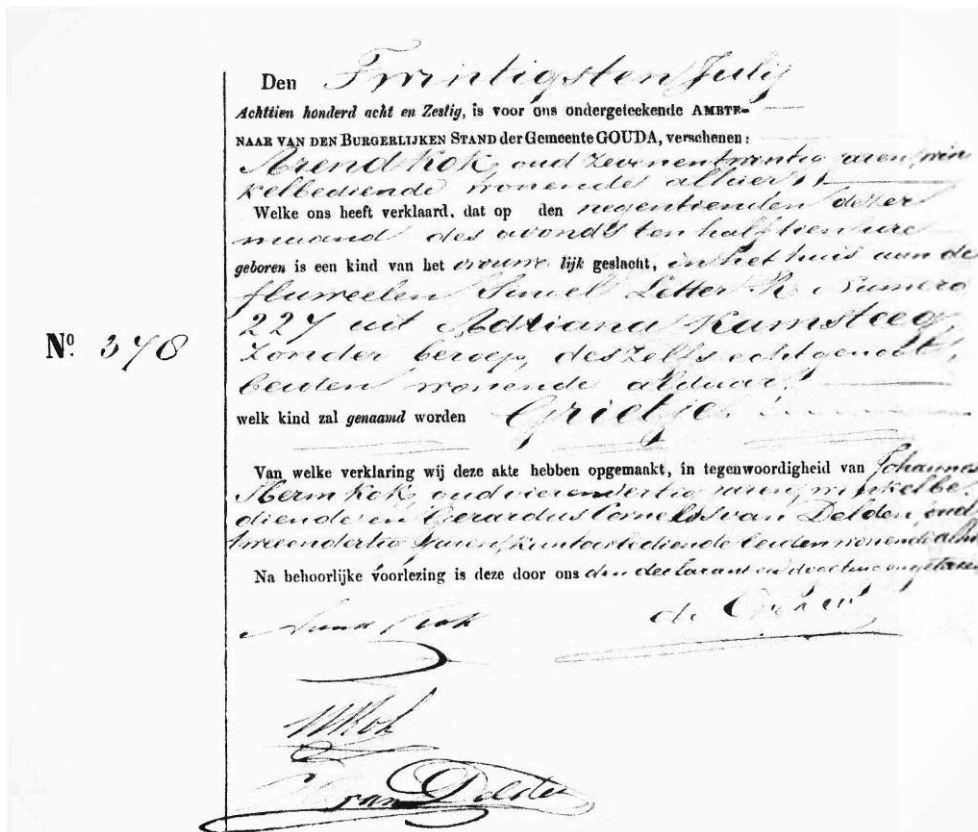 Den Twintigsten Julij
Achttien honderd acht en Zestig, is voor ons ondergeteekende AMBTE-
NAAR VAN DEN BURGERLIJKEN STAND der Gemeente GOUDA, verschenen:
Arend Kok, oud zevenentwintig jaren, win
kelbediende wonende alhier
Welke ons heeft verklaard, dat op den negentienden dezer
maand des avonds ten half tien ure
geboren is een kind van het vrouwelijk geslacht, in het huis aan de
fluweelen Singel Letter R Numero
227 uit Adriana Kamsteeg
zonder beroep, deszelfs echtgenoot,
beiden wonende aldaar
welk kind zal genaamd worden Grietje
Nº. 378
Van welke verklaring wij deze akte hebben opgemaakt, in tegenwoordigheid van Johannes
Herm Kok, oud vierendertig jaren, winkelbe
diende en Gerardus Cornelis van Delden, oud
tweeendertig jaren, kantoorbediende beiden wonende alhi
Na behoorlijke voorlezing is deze door ons den declarant en de getuigen getekend
Arend Kok
Kok
van Delden